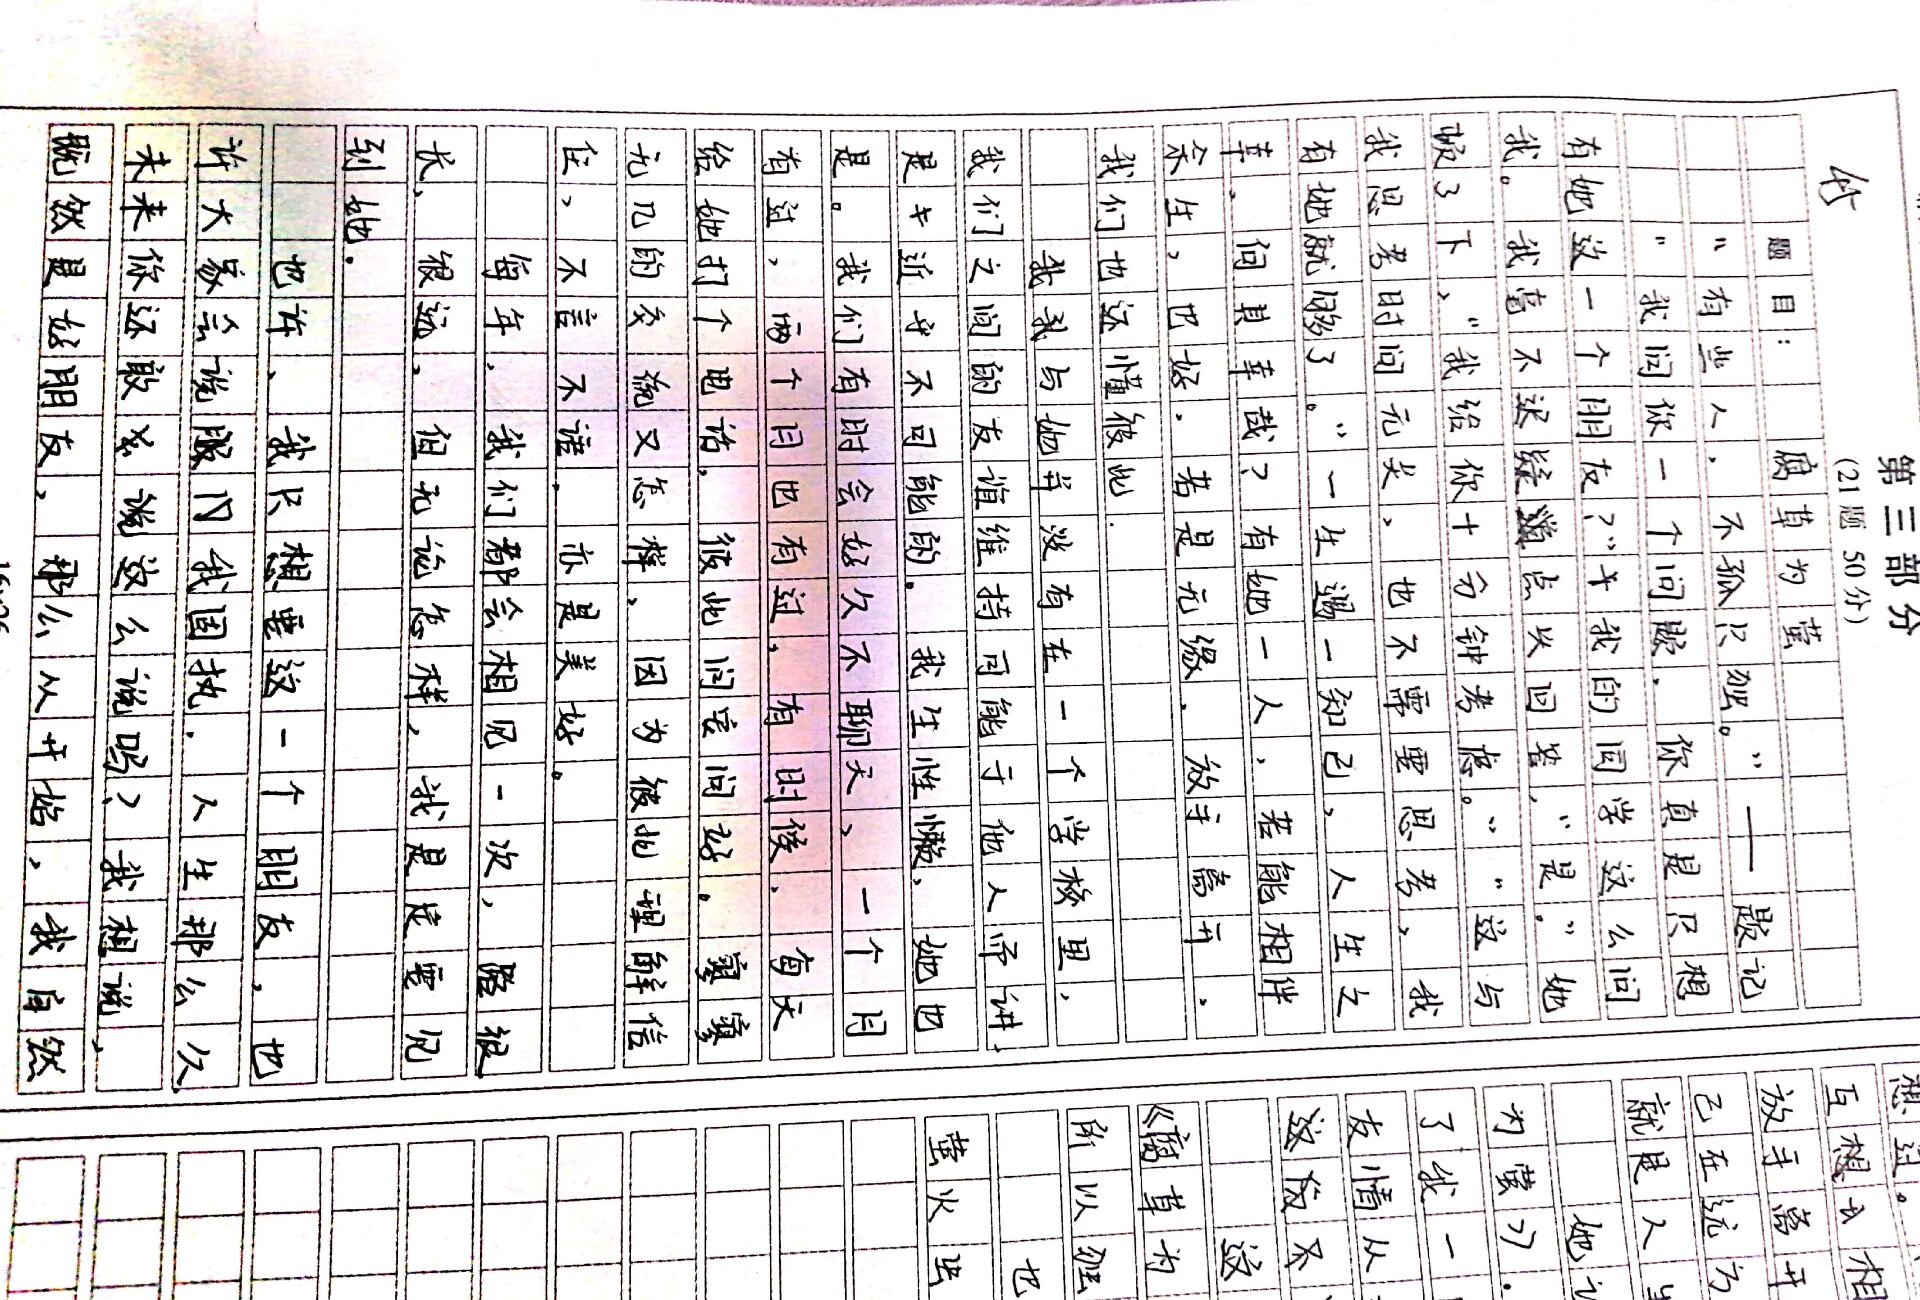 第三部分
(21题 50分)
题目： 腐草为萤
“有些人，不孤只独。”——最记
“我问你一个问题，你真是只想
有她这一个朋友？”我的同学这么问
我。我毫不迟疑点头回答，“是。”她
顿了下，“我给你十分钟考虑。”“这与
我思考时间无关，也不需要思考，我
有她就够了。”一生遇一知己，人生之
幸，何其幸哉？有她一人，若能相伴
余生，也好。若是无缘，放手离开。
我们也还懂彼此.
我与她并没有在一个学校里，
我们之间的友谊维持可能于他人而讲，
是近乎不可能的。我生性懒，她也
是。我们有时会好久不聊天，一个月
有过，两个月也有过，有时候，每天
给她打个电话，彼此问安问好，寥寥
无几的交流又怎样，因为彼此理解信
任，不言不谁，亦是美好。
每年，我们都会相见一次，路很
长，很远，但无论怎样，我是是要见
到她.
也许，我只想要这一个朋友，也
许大家会说服门我固执，人生那么久
未来你还敢说这么说吗？我想说，
既然是好朋友，那么从开始，我自然
想过。
互相
放手离开
己在远方
就是人生
她
为萤》.
了我一
友情从
这
《腐草为
所以独
也
萤火虫